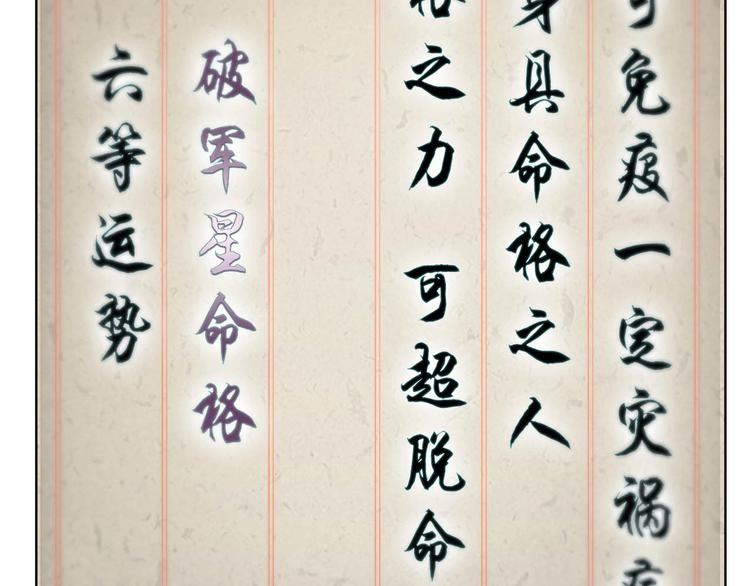 可免疫一定灾祸
身具命格之人
格之力 可超脱命
破军星命格
六等运势